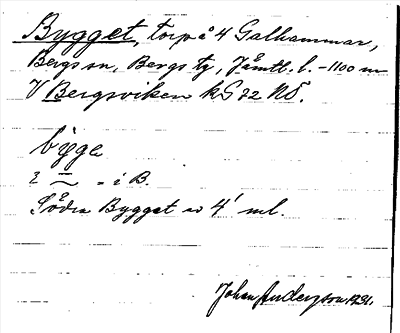 Bygget, torp å 4 Galhammar,
Bergs sn, Bergs tg, Jämtl. l. – 1100 m
V Bergsviken kG 22 NÖ.
byge
i B.
Södra Bygget 4' ml.
Johan Anderzson 1931.